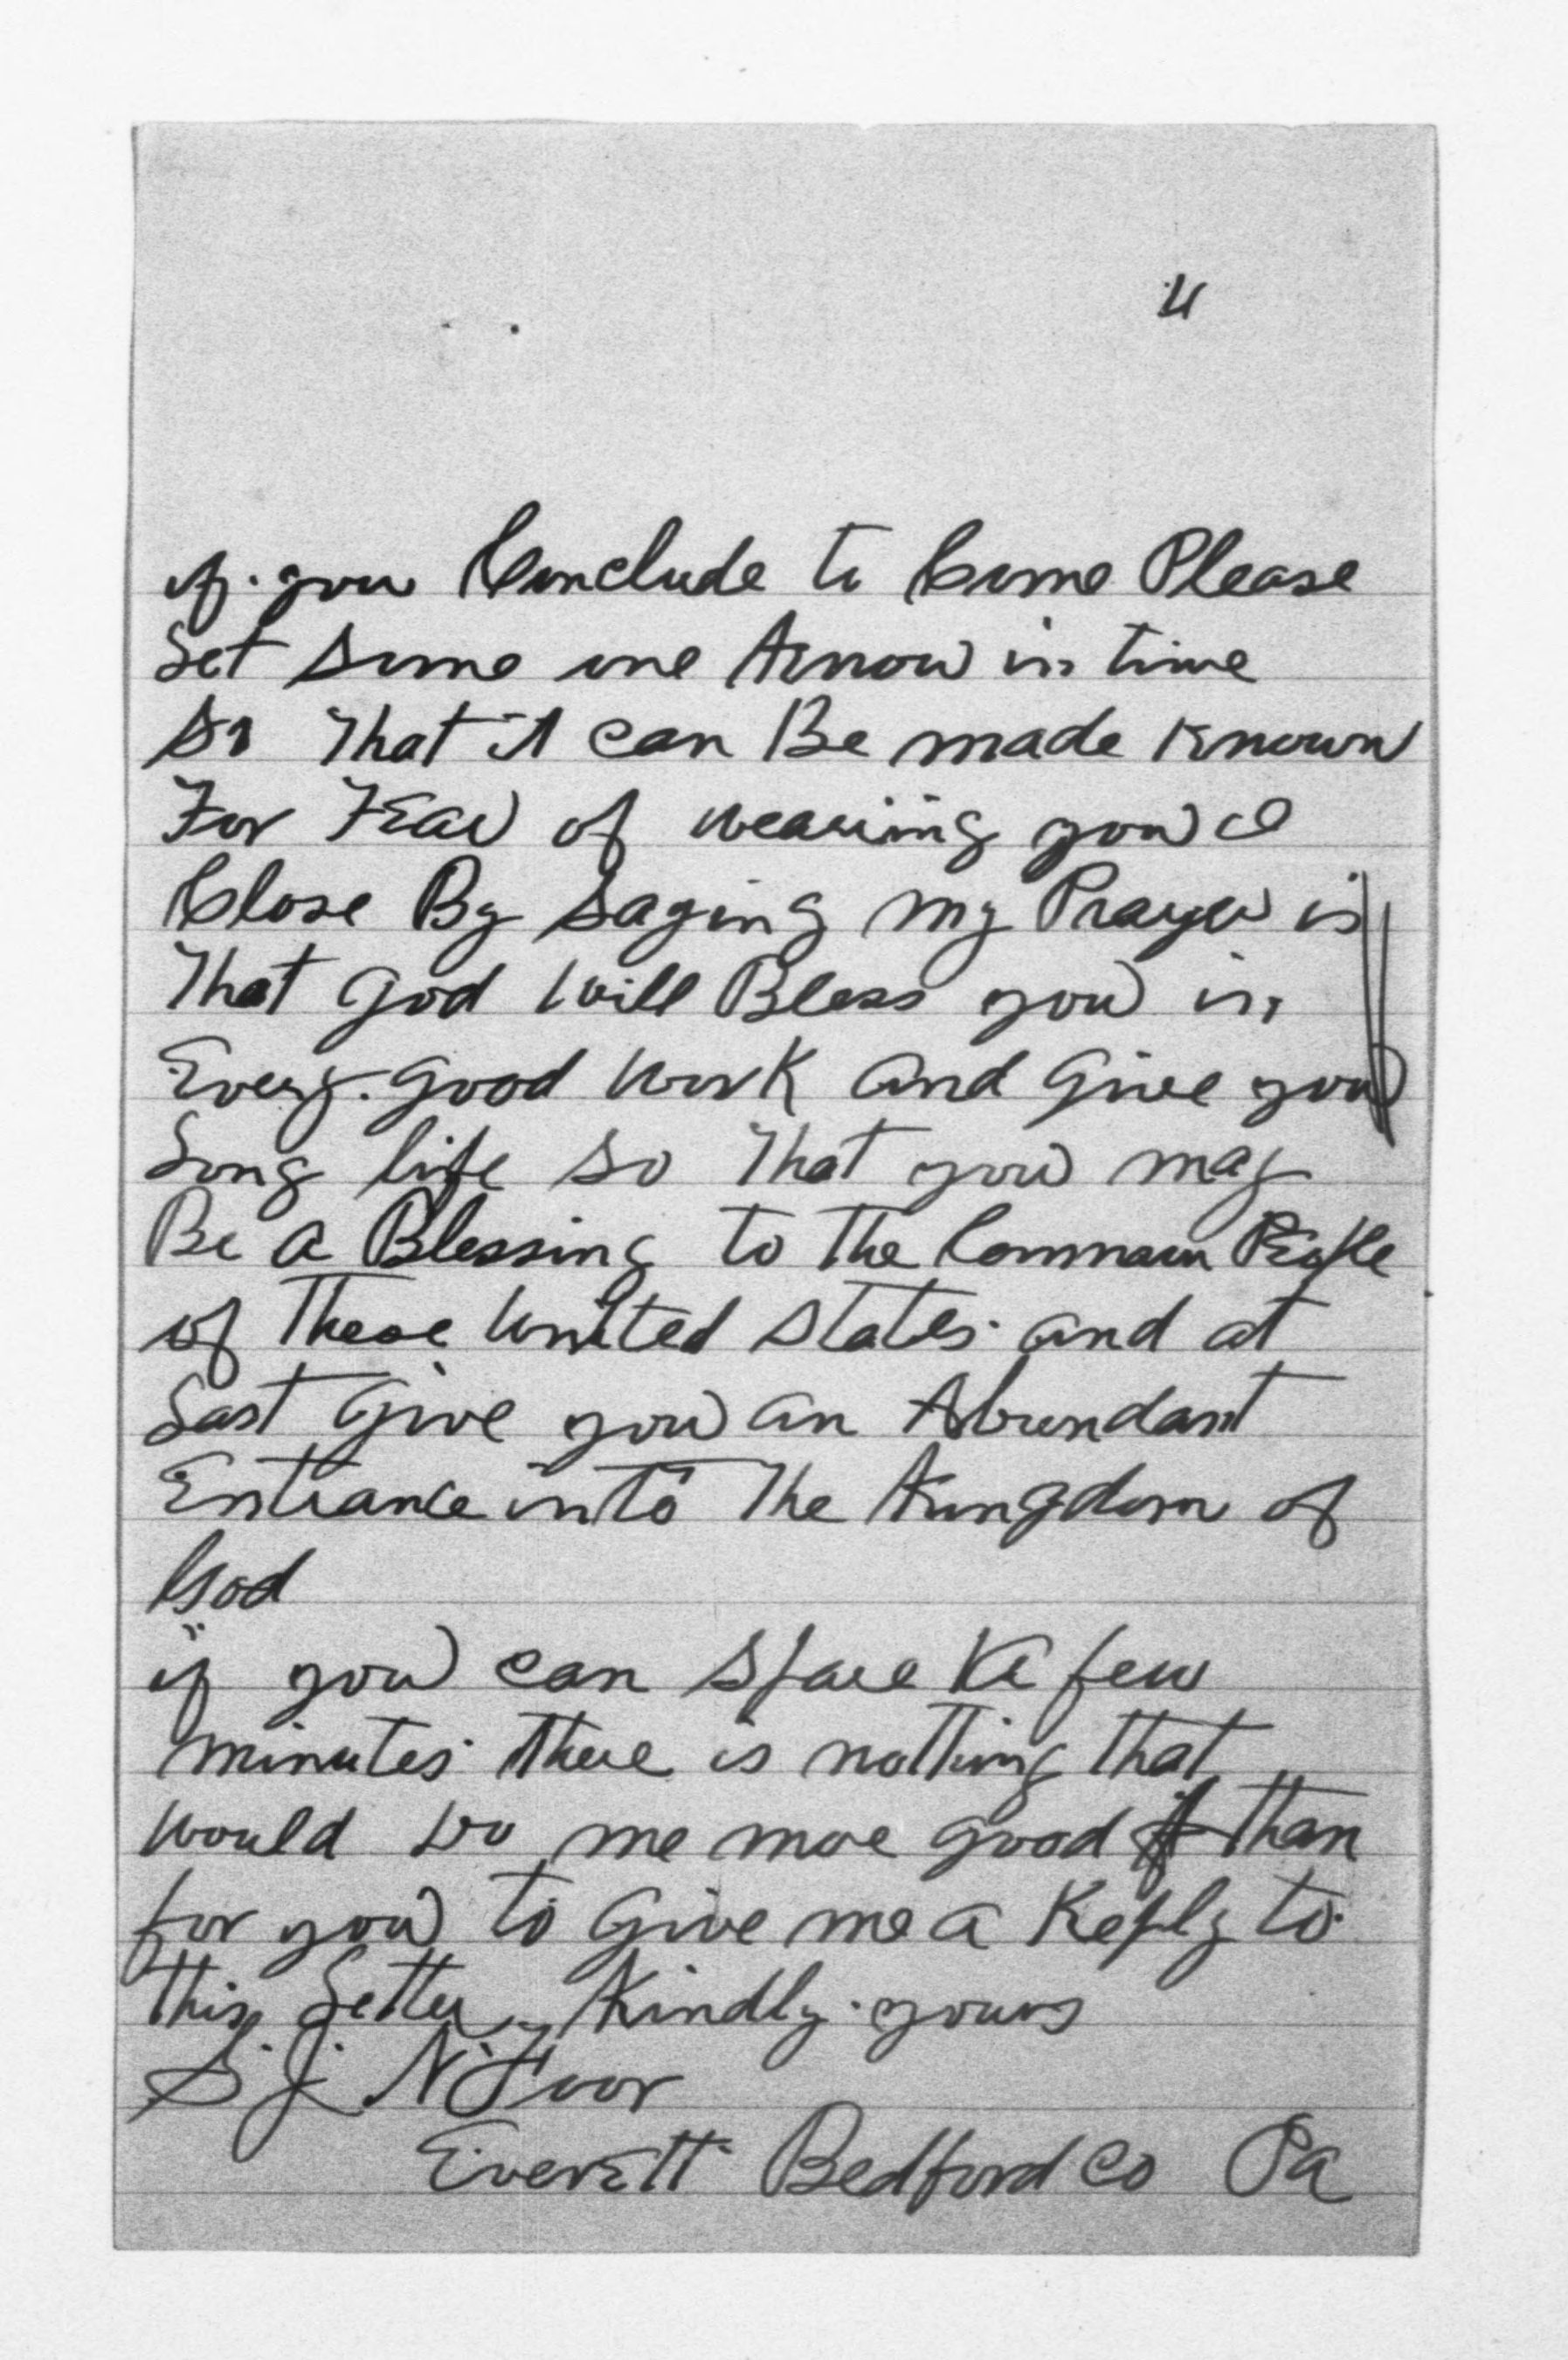 4
if you Conclude to Come Please
Let Some one Know in time
So that it can Be made Known
For Fear of weariing you I
Close By Saying my Prayer is
That God Will Bless you in
Every good work and Give you
Long life so that you may
Be a Blessing to the Common People
of These United States and at
Last Give you an Abundant
Entrance into The Kingdom of
God
if you can Spare a few
minutes there is nothing that
would Do me more good than
for you to Give me a Reply to
this Letter Kindly yours
S. J. N Foor
Everett Bedford Co Pa